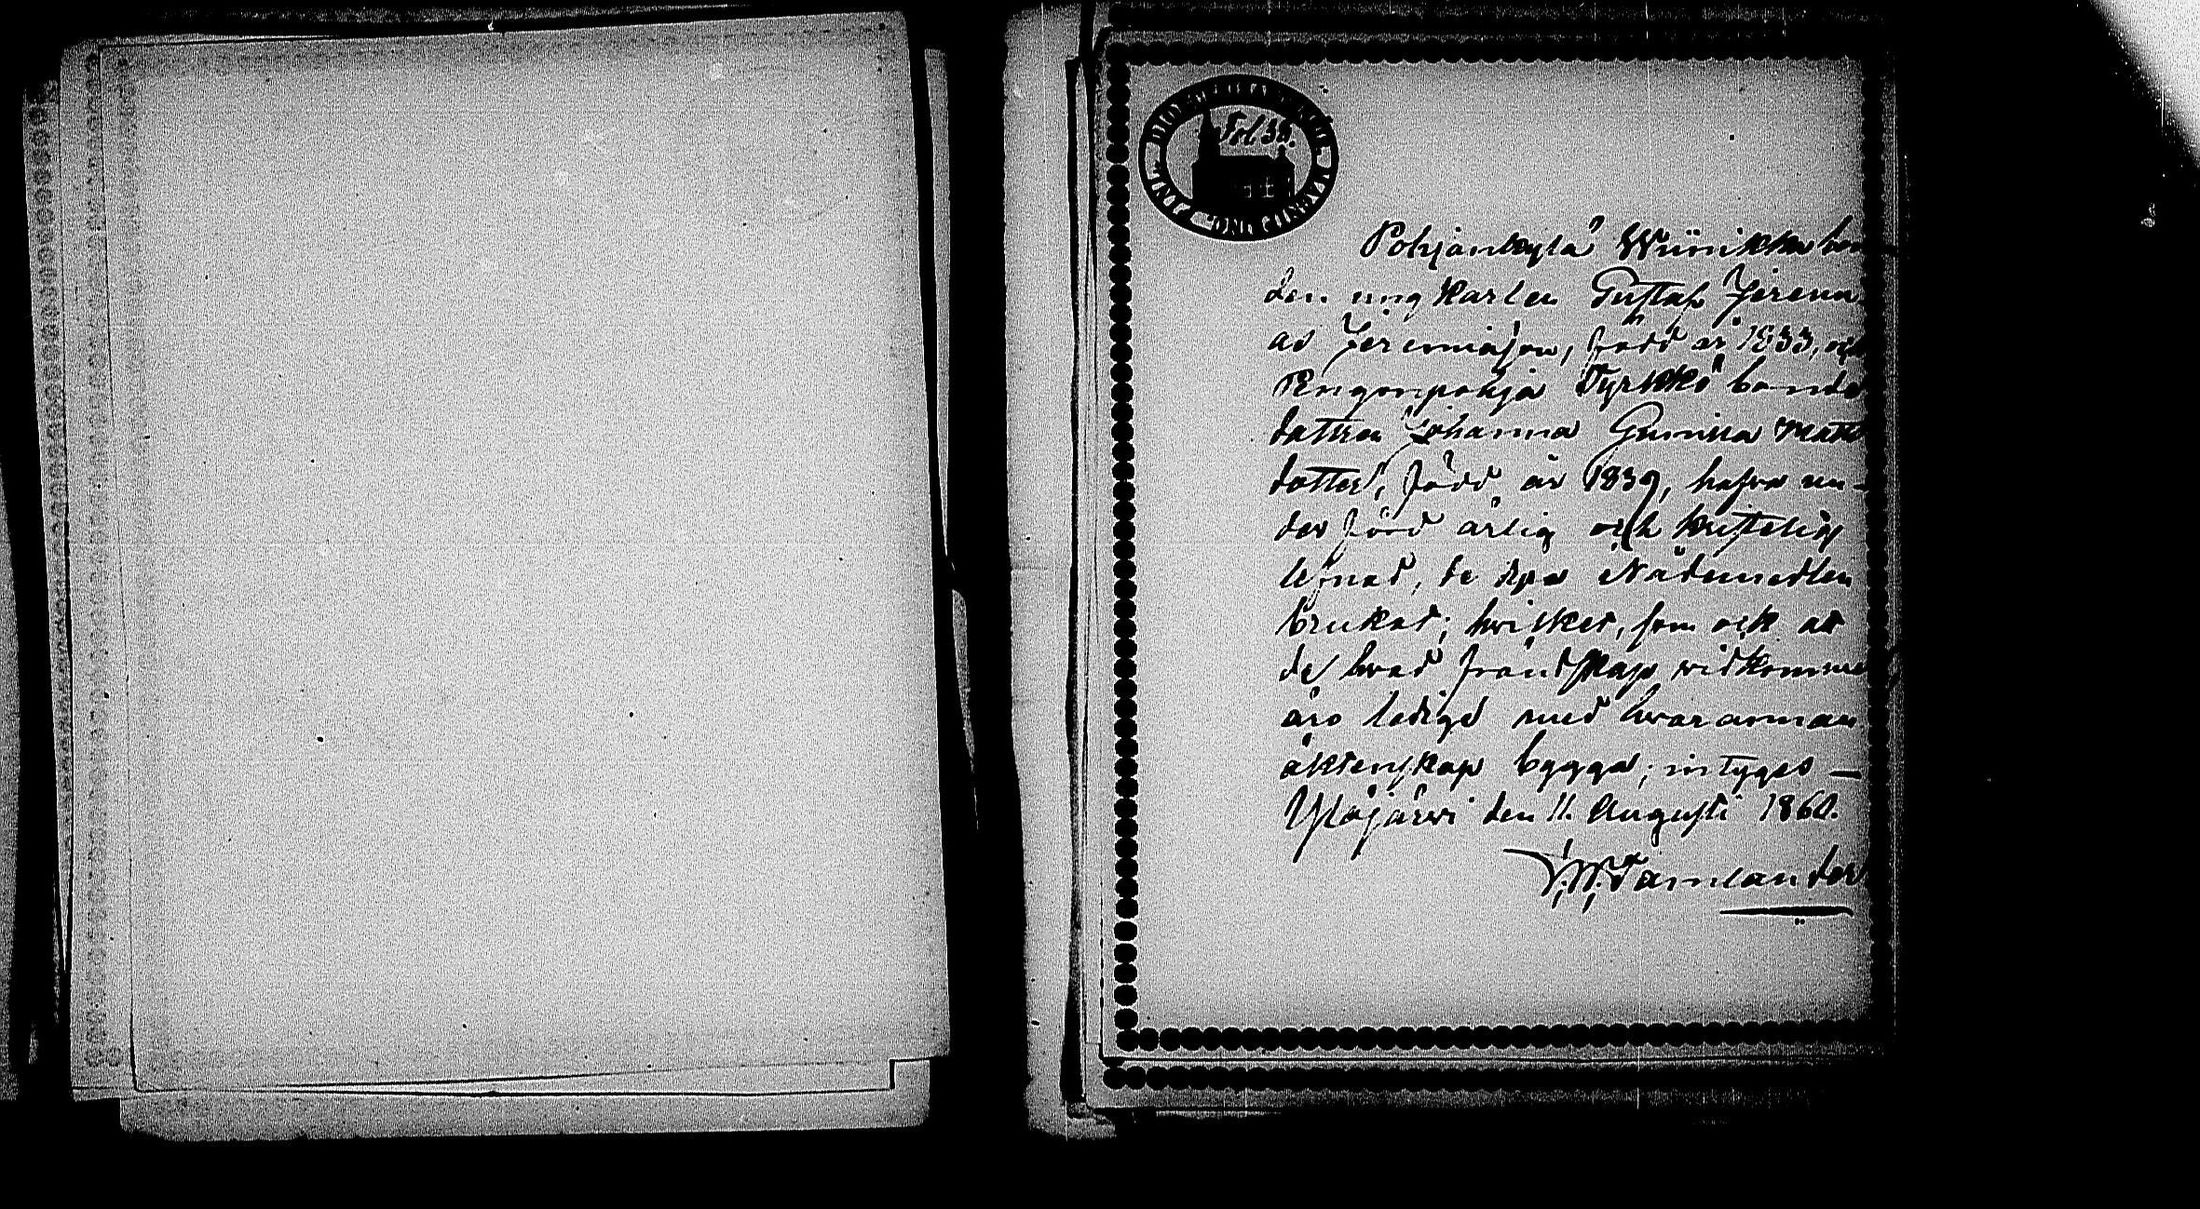 Fol 38.
Pohjankylä Wiinikka bon
den ungkarlen Gustaf Jeremi
as Jeremiason, född år 1833, och
Rengonpohja Tyrkkö bonde
dottren Johanna Gunilla Matts
dotter, född år 1839, hafva un-
der förd ärlig och kristelig
lefnad, de dyra Nådemedlen
brukat; hvilket, som ock att
de hvad frändskap vidkommer
äro lediga med hvarannan
äktenskap bygga; intygas —
Ylöjärvi den 11. Augusti 1860.
Tamlander